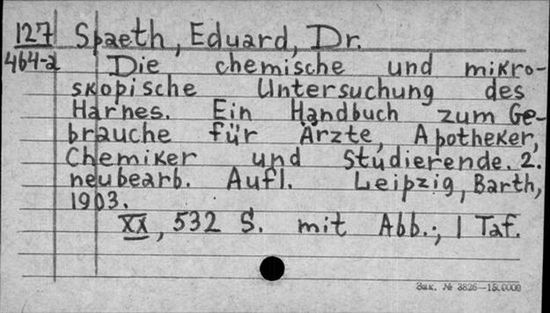 127 Spaeth, Eduard, Dr.
464-2 Die chemische und mikro-
skopische Untersuchung des
Harnes. Ein Handbuch zum Ge-
brauche für Ärzte, Apotheker,
Chemiker und Studierende. 2.
neubearb. Aufl. Leipzig, Barth,
1903.
XX, 532 S. mit Abb.; 1 Taf.
Зак. № 3826—